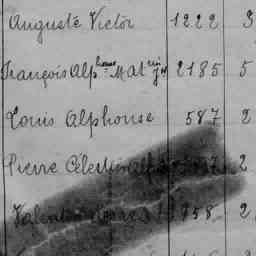 Auguste Victor 1222 3
François Alph 2185 5
Louis Alphonse 587 2
Pierre Célestin 2
Valentin 958 2